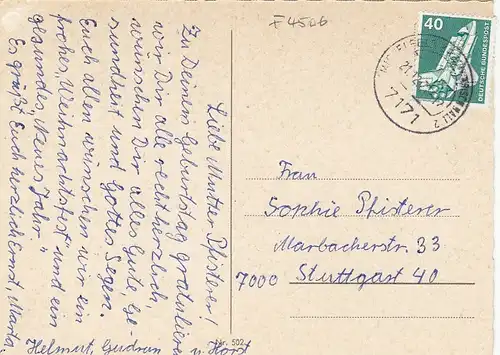 F 4506
40
DEUTSCHE BUNDESPOST
7171
Liebe Mutter Pfisterer!
Zu Deinem Geburtstag gratulieren
wir Dir alle recht herzlich,
wünschen Dir alles Gute, Ge-
sundheit und Gottes Segen.
Euch allen wünschen wir ein
frohes „Weihnachtsfest" und ein
gesundes „Neues Jahr".
Es grüßt Euch herzlich Ernst, Marta,
Helmut, Gudrun u. Horst
Nr. 502
Frau
Sophie Pfisterer
Marbacherstr. 33
7000 Stuttgart 40